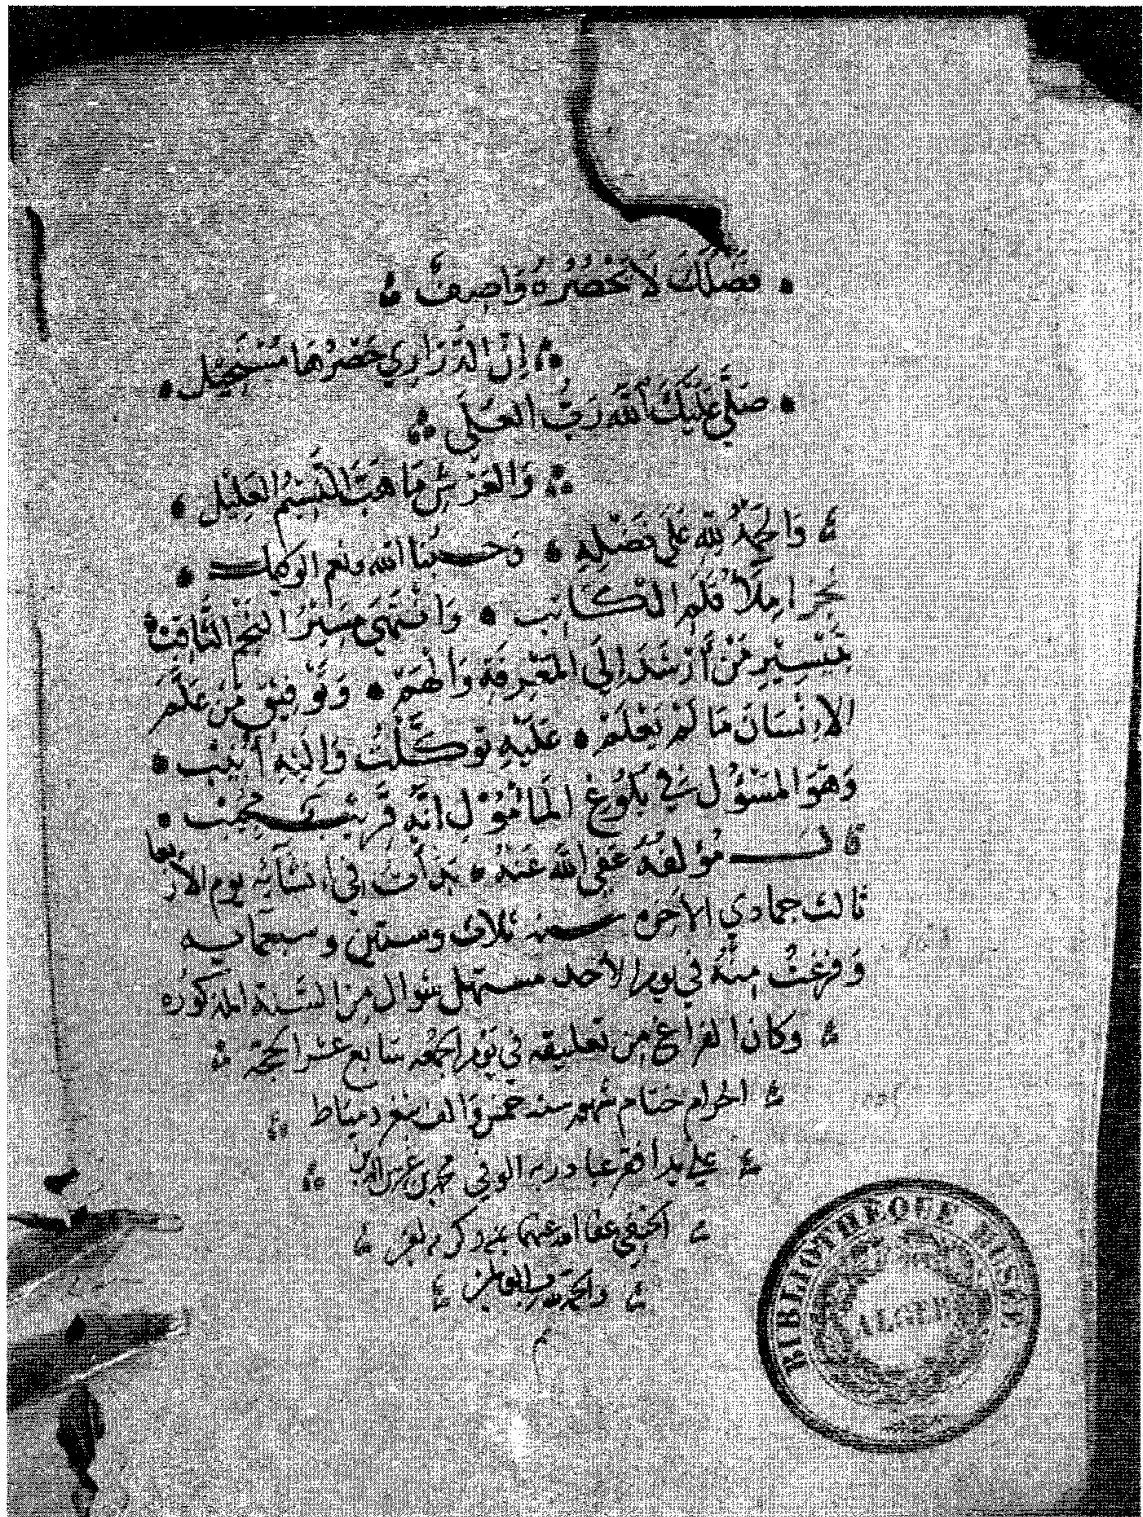 فَضْلُكَ لَا يَحْصُرُهُ وَاصِفٌ
إِنَّ الدَّرَارِي حَصْرُهَا مُسْتَحِيل
صَلَّى عَلَيْكَ اللَّهُ رَبُّ العُلَى
وَالعَرْشِ مَا هَبَّ النَّسِيْمُ العَلِيْل
وَالحَمْدُ لِلَّهِ عَلَى فَضْلِهِ وَحسْبُنَا الله ونعم الوكيل
نَجَزَ إِمْلَاءُ قَلَمِ الكَاتِب وَانْتَهَى مَسِيْرُ النَّجْمِ الثَّاقِب
بِتَيْسِيْرِ مَنْ أَرْشَدَ إِلَى المَعْرِفَةِ وَأَلْهَمْ وَتَوْفِيْقِ مَنْ عَلَّمَ
الإِنْسَانَ مَا لَمْ يَعْلَمْ عَلَيْهِ تَوَكَّلْتُ وَإِلَيْهِ أُنِيْب
وَهُوَ المَسْؤُل فِي بُلُوغِ المَأْمُوْلِ إِنَّهُ قَرِيْب مُجِيْب
قالــ مُؤَلِفُهُ عَفَى اللَّه عَنْهُ بَدَأتُ فِي إنشَآئِهِ يوم الأربعا
ثالث جمادي الآخره سنه ثلاث وستين وسبعمايه
وَفَرغتُ مِنْهُ فِي يوم الأحد مستهل شوال مِنَ السَّنة المذكوره
وكان الفراغ مِن تعليقه في يوم الجمعه سابع عشر الحجة
الحرام ختام شهور سنه خمس وألف بثغر دمياط
على يد أفقر عباد ربه الوفي محمد بن غرس الدين
الحنفي عفا الله عنهما بمنه وكرمه
والحمد لله رب العالمين
BIBLIOTHEQUE MUSEE
ALGER